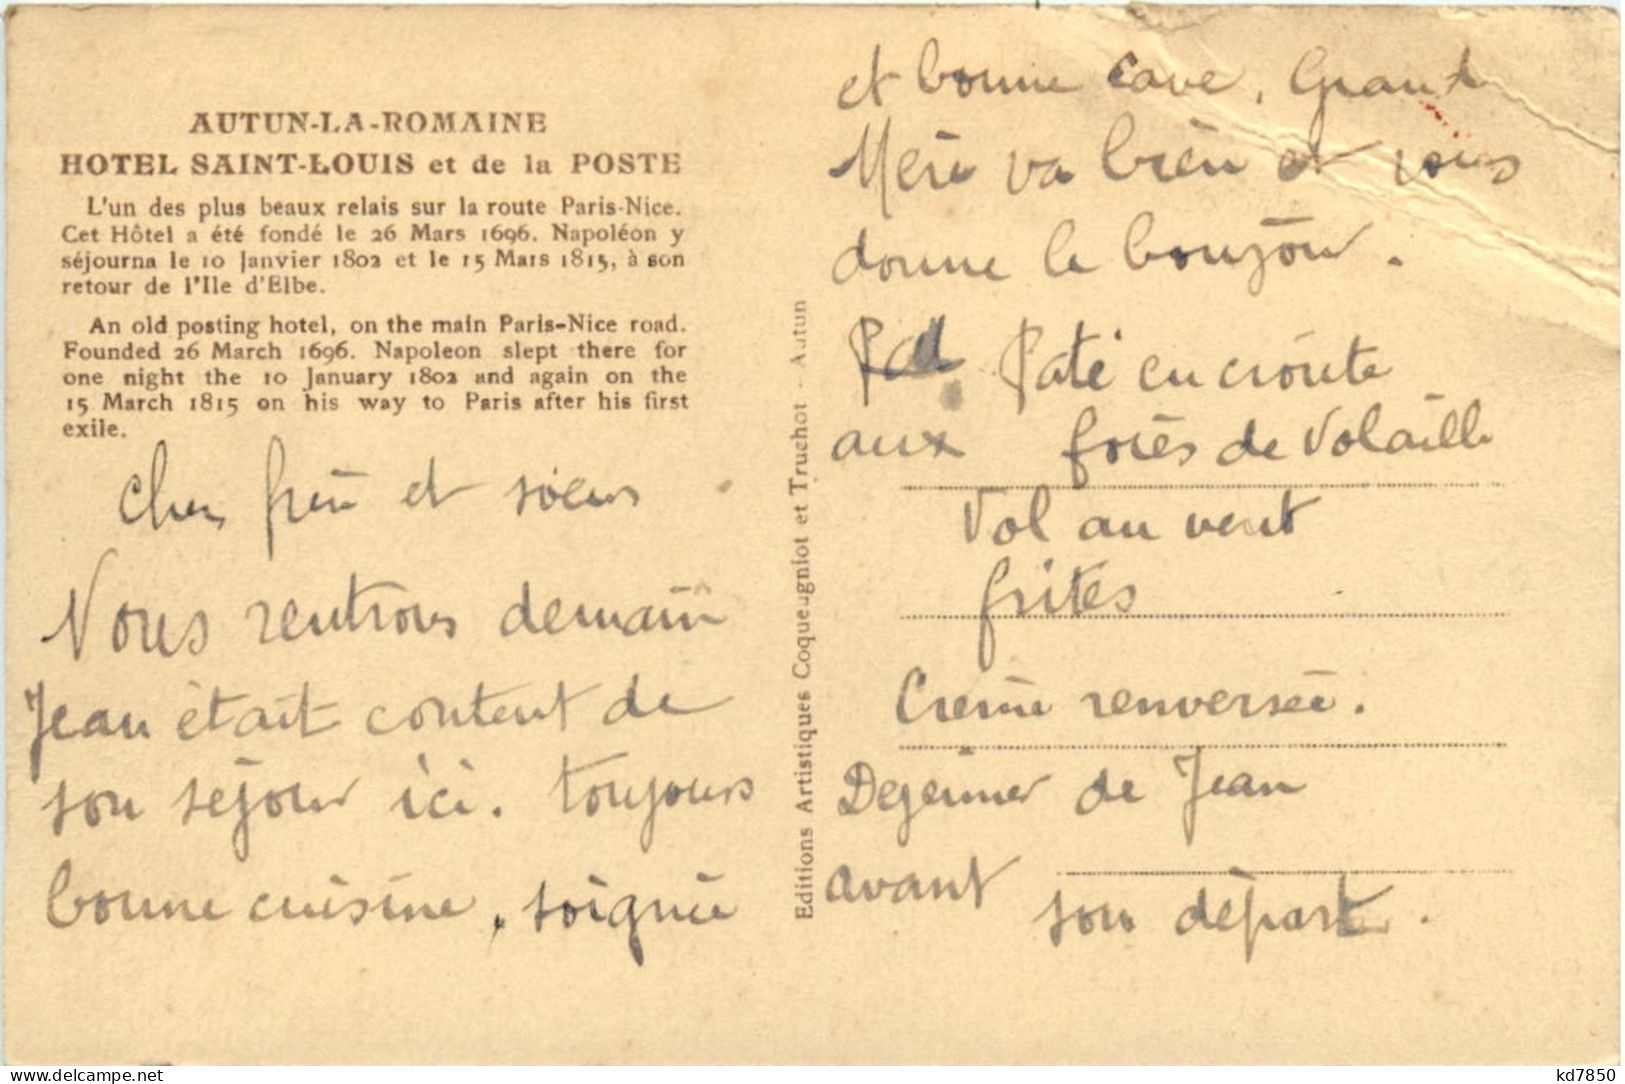 AUTUN-LA-ROMAINE
HOTEL SAINT-LOUIS et de la POSTE
L'un des plus beaux relais sur la route Paris-Nice.
Cet Hôtel a été fondé le 26 Mars 1696. Napoléon y
séjourna le 10 Janvier 1802 et le 15 Mars 1815, à son
retour de l'Ile d'Elbe.
An old posting hotel, on the main Paris-Nice road.
Founded 26 March 1696. Napoleon slept there for
one night the 10 January 1802 and again on the
15 March 1815 on his way to Paris after his first
exile.
Cher frère et soeur
Nous rentrons demain
Jean était content de
son séjour ici. toujours
bonne cuisine, soignée
Editions Artistiques Coqueugniot et Truchot - Autun
et bonne cave, Grand
Mère va bien et vous
donne le bonjour.
Paté en croute
aux foies de Volaille
Vol au vent
frites
Crème renversée.
Dejeuner de Jean
avant son départ.
kd7850